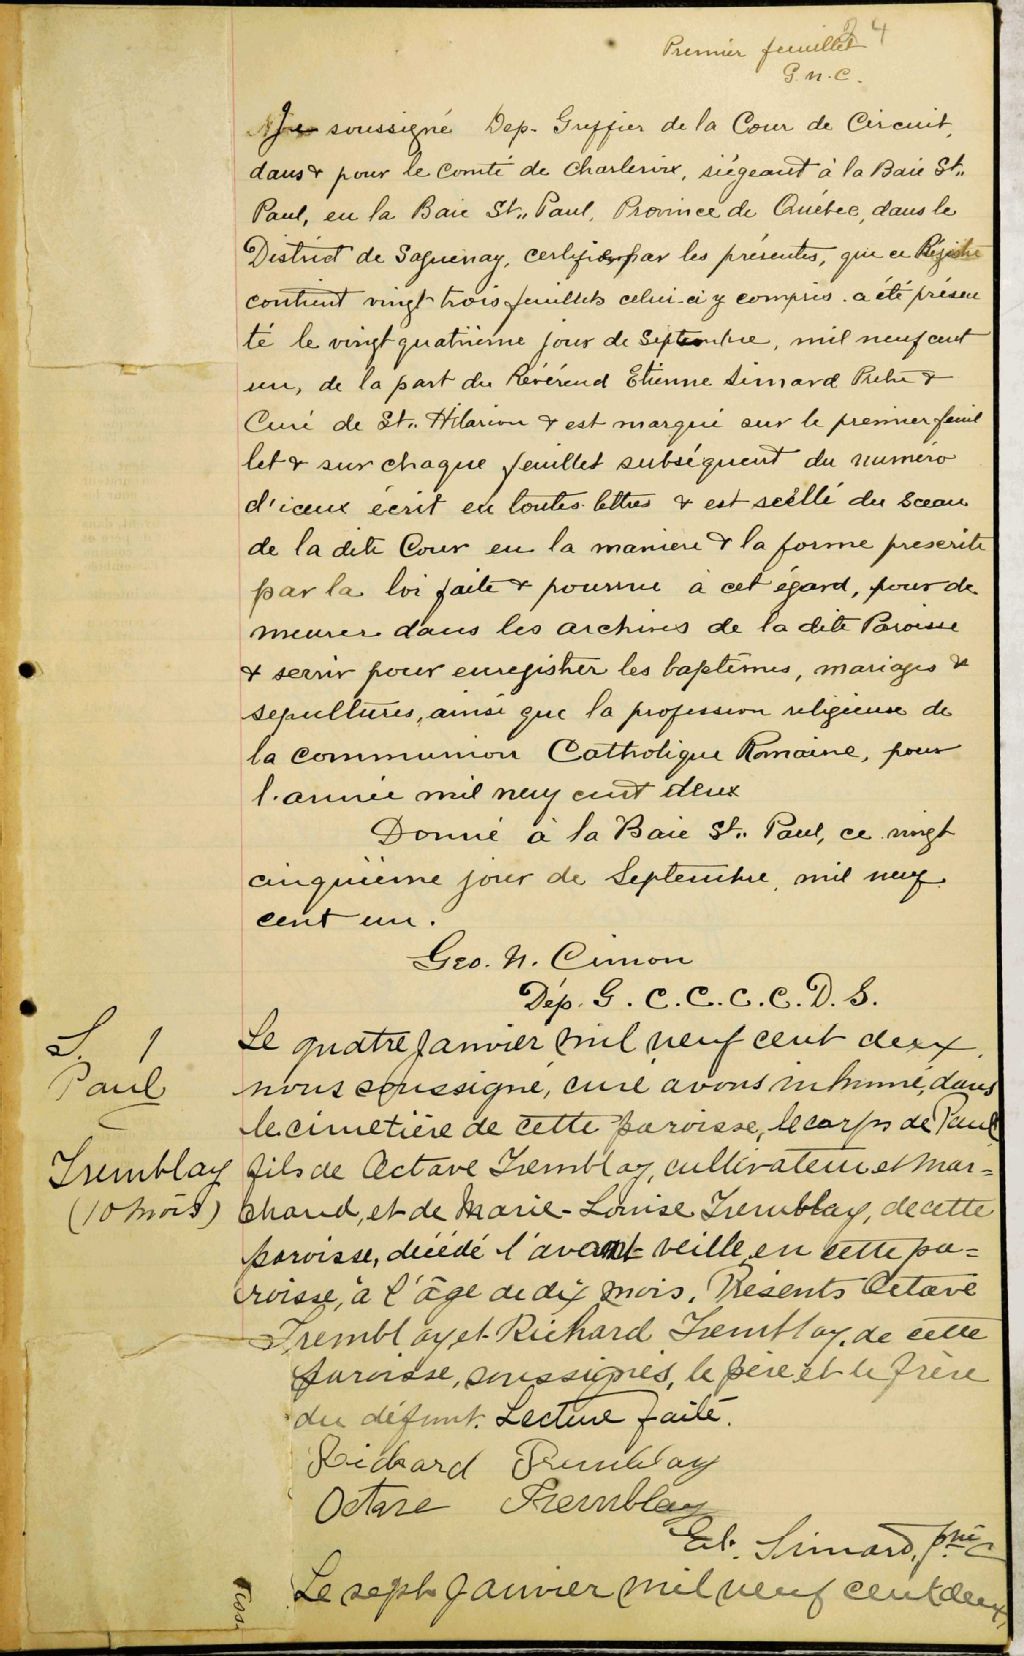 24
Premier feuillet
G.N.C.
Je soussigné Dep. Greffier de la Cour de Circuit,
dans & pour le Comté de Charlevoix, siégeant à la Baie St.,
Paul, en la Baie St., Paul, Province de Québec, dans le
District de Saguenay, certifie par les présentes, que ce Régistre
contient vingt trois feuillets celui-ci y compris a été présen
té le vingt quatrième jour de Septembre, mil neuf cent
un, de la part du Révérend Etienne Simard Prêtre &
Curé de St., Hilarion & est marqué sur le premier feuil
let & sur chaque feuillet subséquent du numéro
d'iceux écrit en toutes lettres & est scéllé du Sceau
de la dite Cour en la maniere & la forme prescrite
par la loi faite & pourvue à cet égard, pour de
meurer dans les archives de la dite Paroisse
& servir pour enregistrer les baptêmes, mariages &
sepultures, ainsi que la profession religieuse de
la communion Catholique Romaine, pour
l'année mil neuf cent deux
Donné à la Baie St., Paul, ce vingt
cinquième jour de Septembre, mil neuf
cent un.
Geo. N. Cimon
Dép. G. C. C. C. C. D. S.
S. 1
Paul
Tremblay
(10 mois)
Le quatre Janvier mil neuf cent deux,
nous soussigné, curé avons inhumé, dans
le cimetière de cette paroisse, le corps de Paul
fils de Octave Tremblay, cultivateur et mar=
chand, et de Marie-Louise Tremblay, de cette
paroisse, décédé l'avant veille, en cette pa=
roisse, à l'âge de dix mois. Présents Octave
Tremblay et Richard Tremblay, de cette
paroisse, soussignés, le père et le frère
du défunt. Lecture faite.
Richard Tremblay
Octave Tremblay
Et. Simard, ptre
Le sept Janvier mil neuf cent deux,